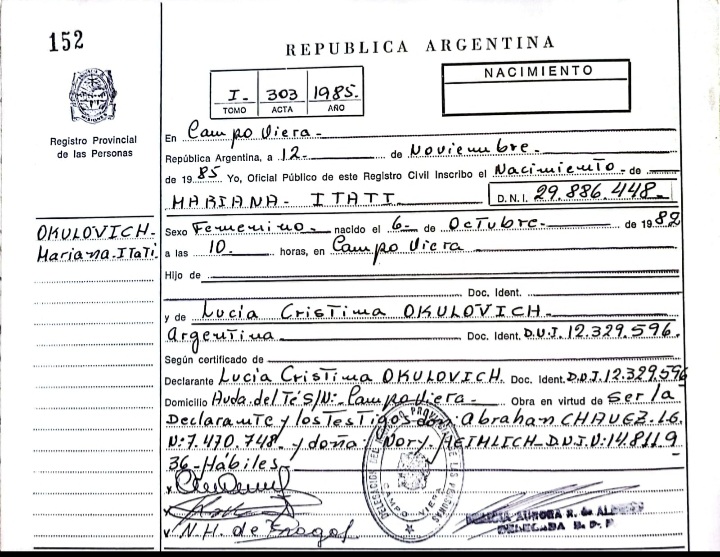 152
REPUBLICA ARGENTINA
I. 303 1985.
TOMO ACTA AÑO
NACIMIENTO
Registro Provincial
de las Personas
En Campo Viera.
República Argentina, a 12. de Noviembre.
de 1985 Yo, Oficial Público de este Registro Civil Inscribo el Nacimiento - de
MARIANA- ITATI D.N.I. 29.886.448-
OKULOVICH-
Mariana. Itati.
Sexo Femenino. nacido el 6- de Octubre. de 1982
a las 10. horas, en Campo Viera
Hijo de
Doc. Ident.
y de Lucía Cristina OKULOVICH
Argentina Doc. Ident. D.N.I. 12.329.596.
Según certificado de
Declarante Lucía Cristina OKULOVICH. Doc. Ident. D.N.I. 12.329.596
Domicilio Avda. del Té S/N: Campo Viera- Obra en virtud de ser la
Declarante y los Testigos don: Abraham CHAVEZ. L.E.
N: 7.470.748- y doña: Nory HEIMLICH- D.N.I. N: 14.811.9
36- Hábiles-
N. H. de
CAMPO VIERA
AURORA R. de
DELEGADA R. P. P